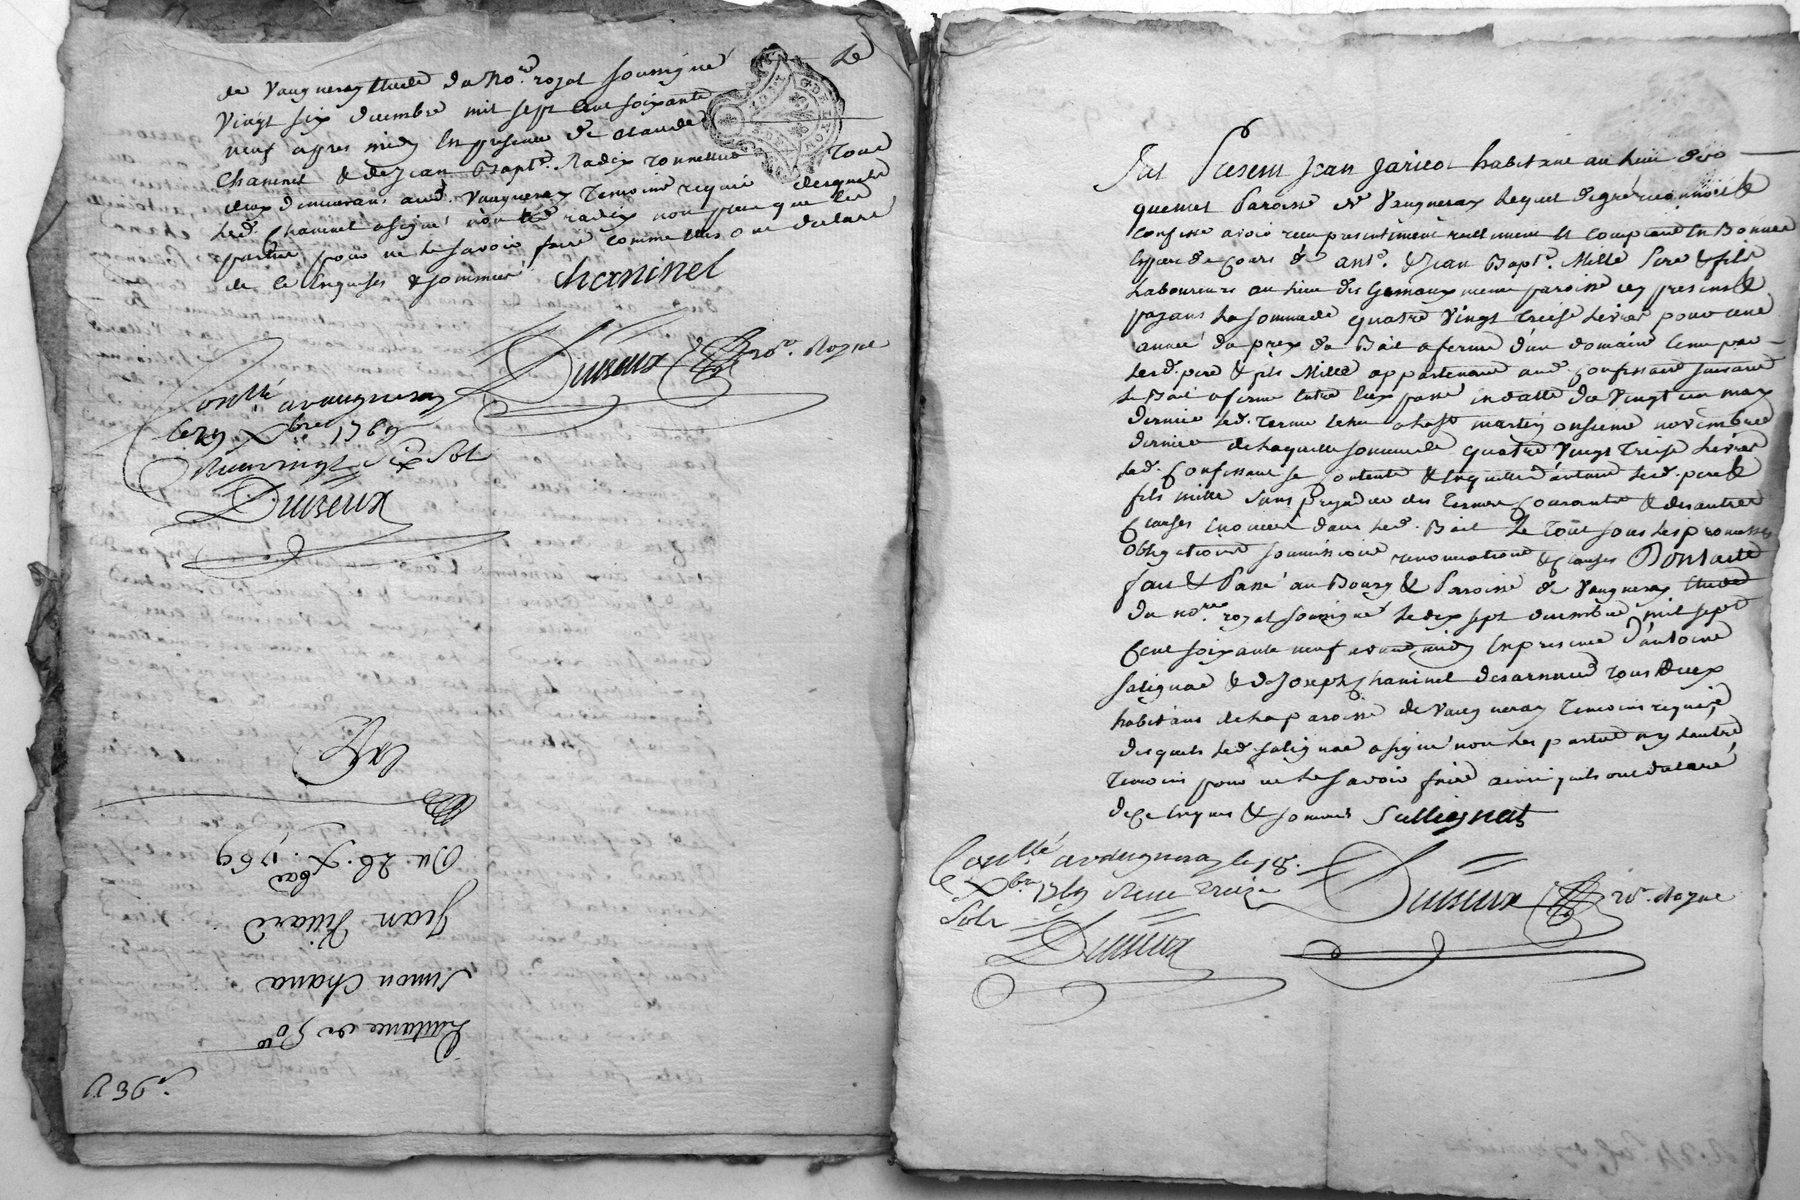 de Vaugneray Etude du No.re royal soussigné Le
Vingt six decembre mil sept cent soixante
neuf apres midy En presence de Claude
Chaninel & de Jean Bapt.e Radix tonnellier Tous
deux demeurans aud. Vaugneray Temoins requis desquels
Led. Chaninel a signé non led radix non plus que les
parties pour ne le savoir faire comme elles ont declaré
de ce Enquises & sommés Chaninel
Duiseux No.re Royal
Con.llé a vaugneray
le 29 Xbre 1769
Reçu vingt six sols
Duiseux
Quittance de 50
Simon Chana
Jean Rivard
Du 26. Xbre 1769
Fut Present Jean Jaricot habitant au lieu de
Paroisse de Vaugneray Lequel de gré reconnoit &
confesse avoir reçu presentement reellement & comptant En Bonnes
Especes de cours de ant.e & Jean Bapt.e Mille Pere & fils
Laboureurs au lieu des Gemaux meme paroisse icy presents &
payans La somme de quatre Vingt treise Livres pour une
année du prix du Bail a ferme d'un domaine tenu par
Lesd. pere & fils Mille appartenant aud. Confessant suivant
Le Bail a ferme Entre Eux passé in datte du Vingt un may
dernier led. terme echu a la st martin onsieme novembre
dernier de laquelle somme de quatre Vingt Treise Livres
Led. Confessant se contente & En quitte d'autant Lesd. pere &
fils mille sans prejudice des termes Courants & des autres
Clauses Enoncées dans led. Bail Le Tout sous les promesses
obligations soumissions renonciations & Clauses Dont acte
fait & Passé au Bourg & Paroisse de Vaugneray Etude
du No.re royal soussigné Le dix sept decembre mil sept
Cent soixante neuf avant midy En presence d'antoine
Salignac & de Joseph Chaninel desarnaud Tous deux
habitans de la paroisse de Vaugneray Temoins requis
desquels Led. Salignac a signé non Les parties ny L'autre
Temoin pour ne Le savoir faire ainsi quils ont declaré
de Ce Enquis & sommés Sallignat
Con.llé a vaugneray le 18.
Xbre 1769 Reçu treize
Sols Duiseux No.re Royal
Duiseux